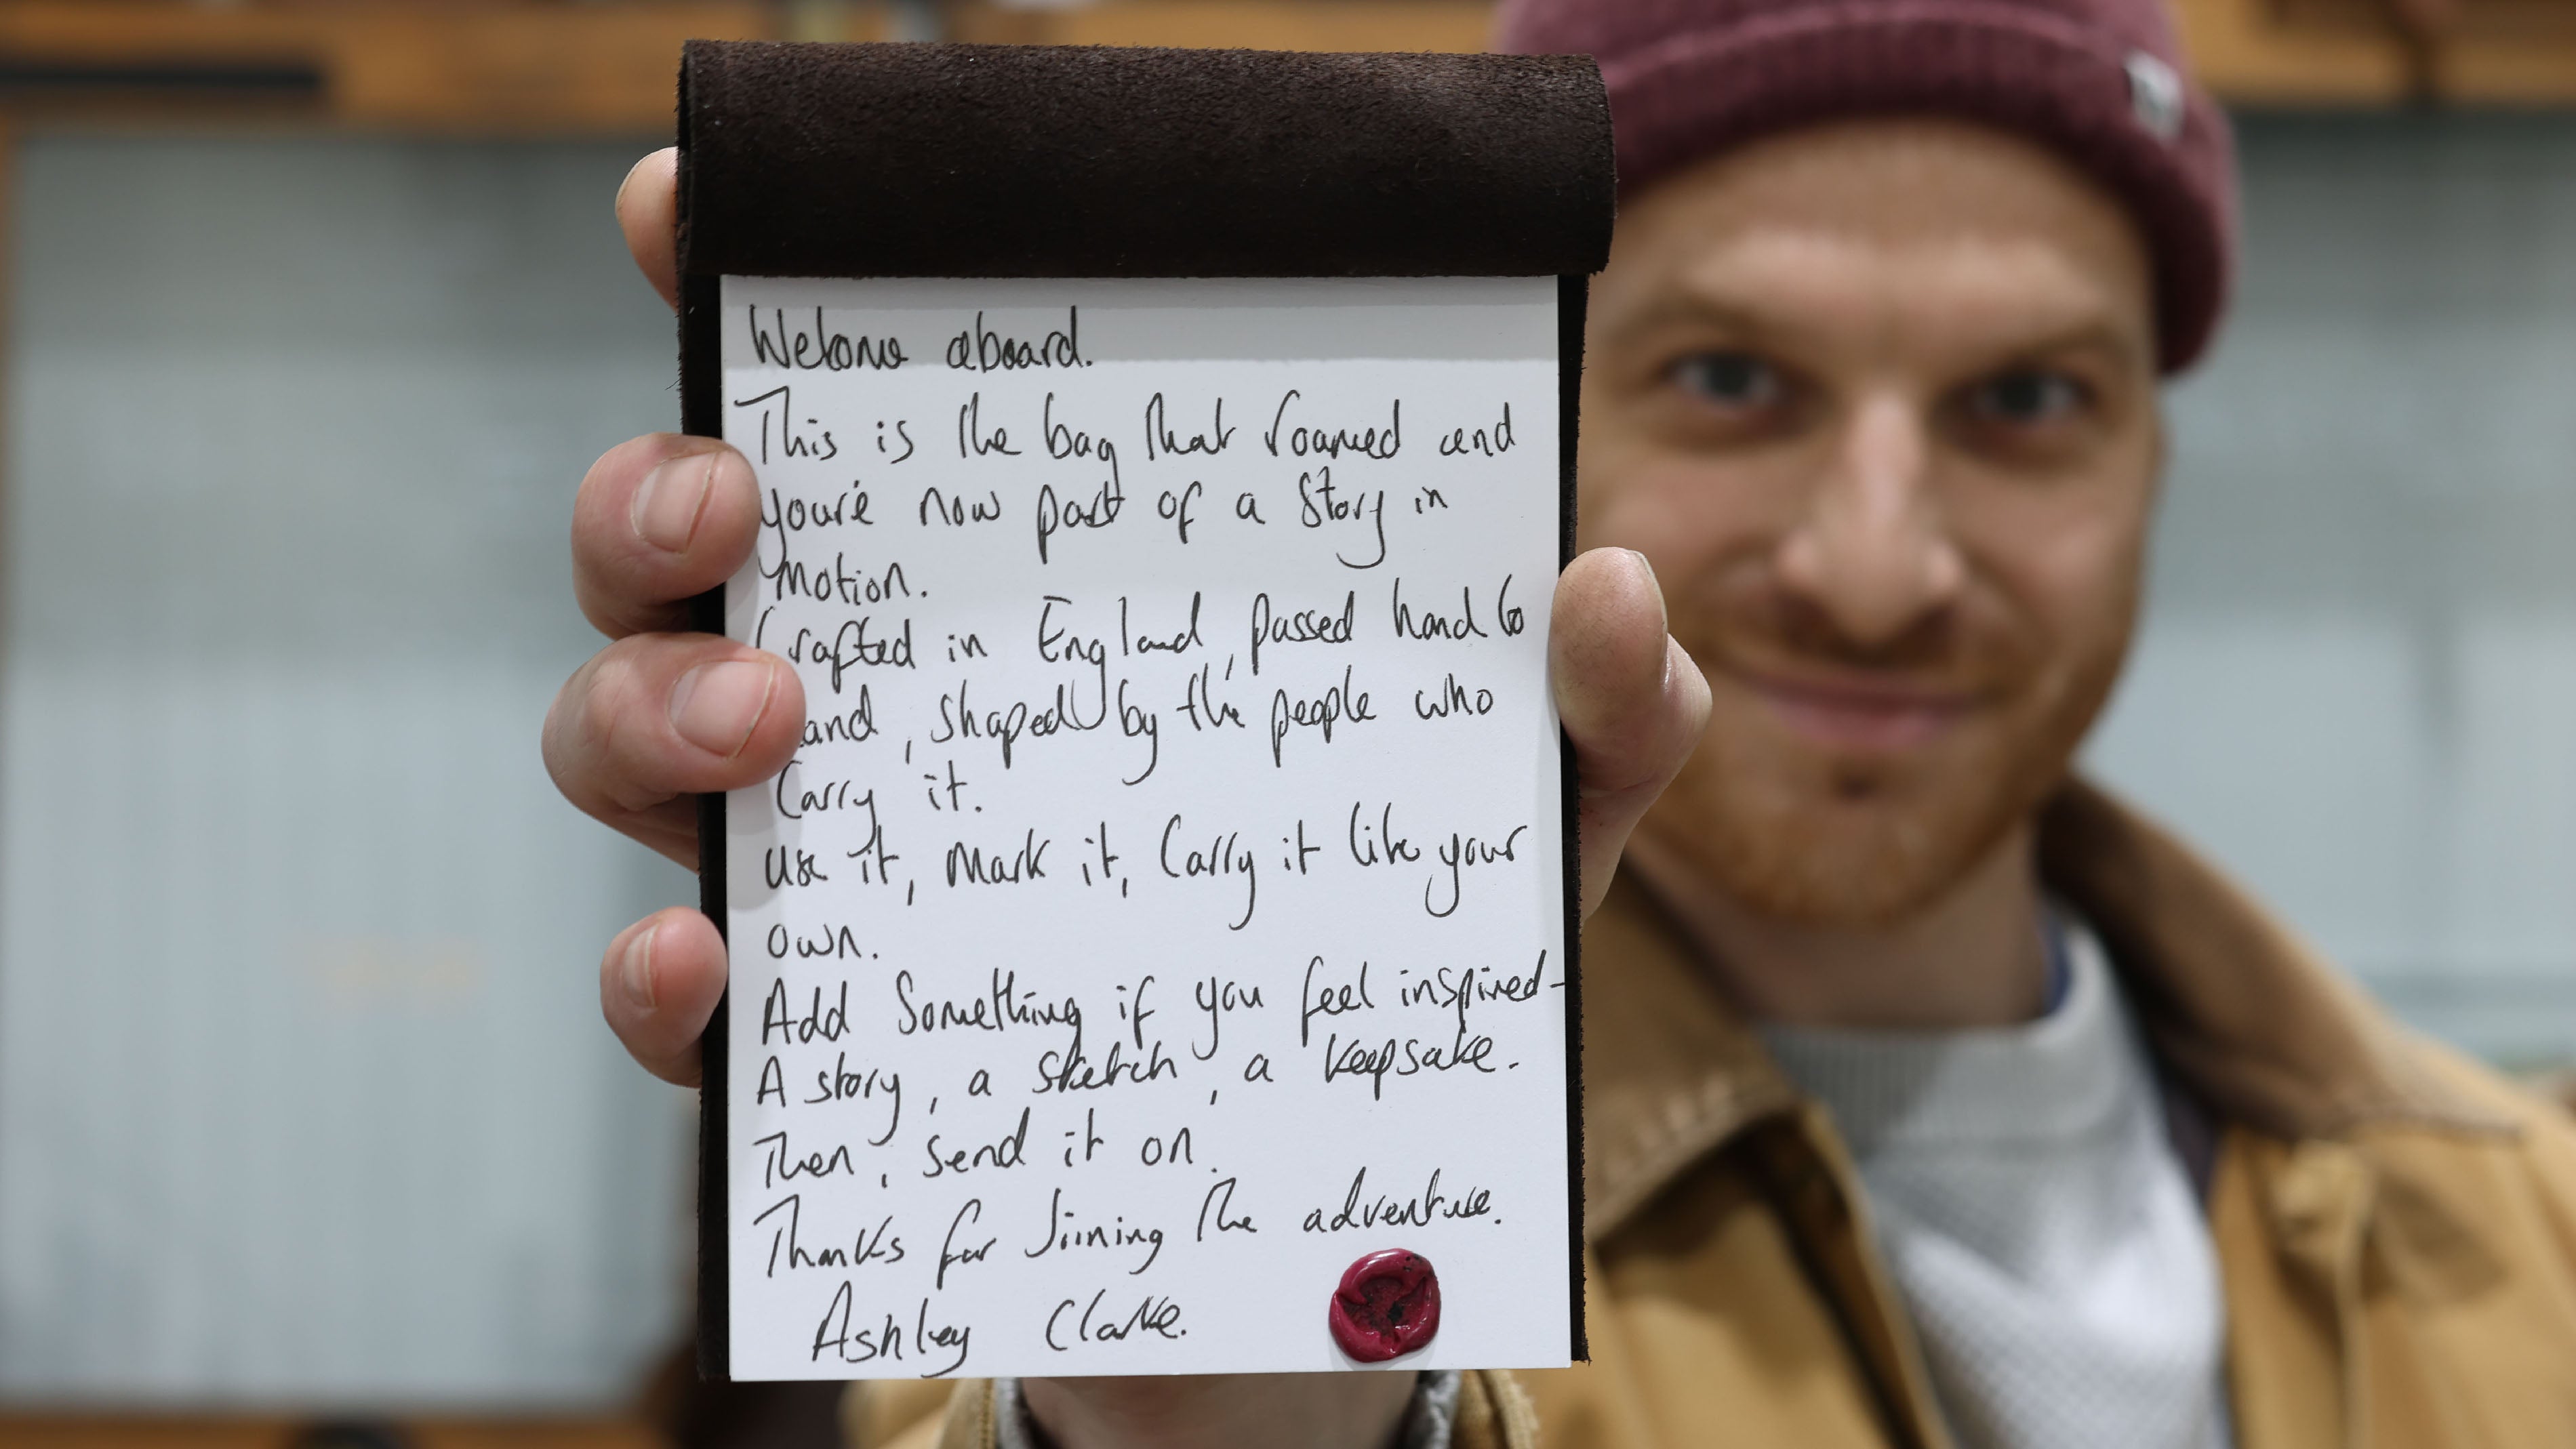 Welcome aboard.
This is the bag that roamed and
you're now part of a story in
motion.
Crafted in England, passed hand to
hand, shaped by the people who
Carry it.
Use it, Mark it, Carry it like your
own.
Add Something if you feel inspired-
A story, a sketch, a keepsake.
Then, send it on.
Thanks for Joining the adventure.
Ashley Clarke.